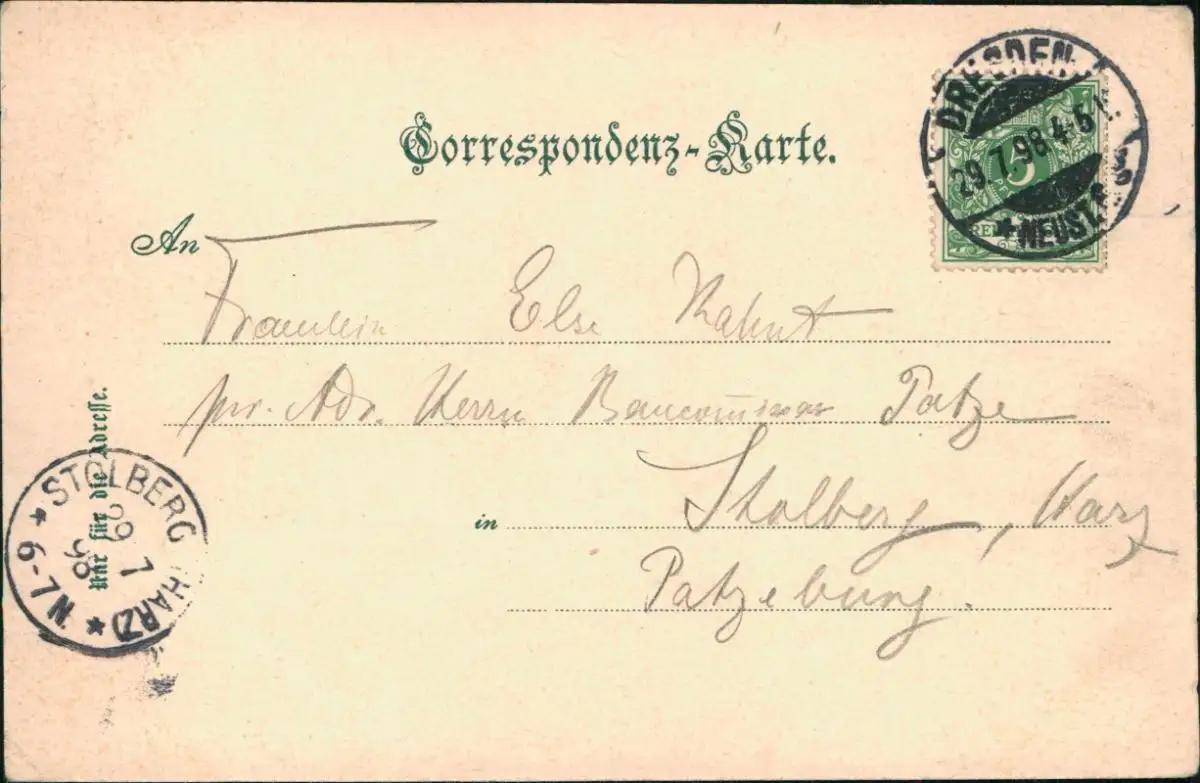 Correspondenz-Karte.
DRESDEN
29.7.98.4-5
* NEUST.
5
An
Fräulein Else Kahnt
pr. Adr. Herrn Baucommissar Patze
in Stolberg, Harz
Patzeburg.
Nur für die Adresse.
* STOLBERG (HARZ) *
29 7 98
N. 6-7